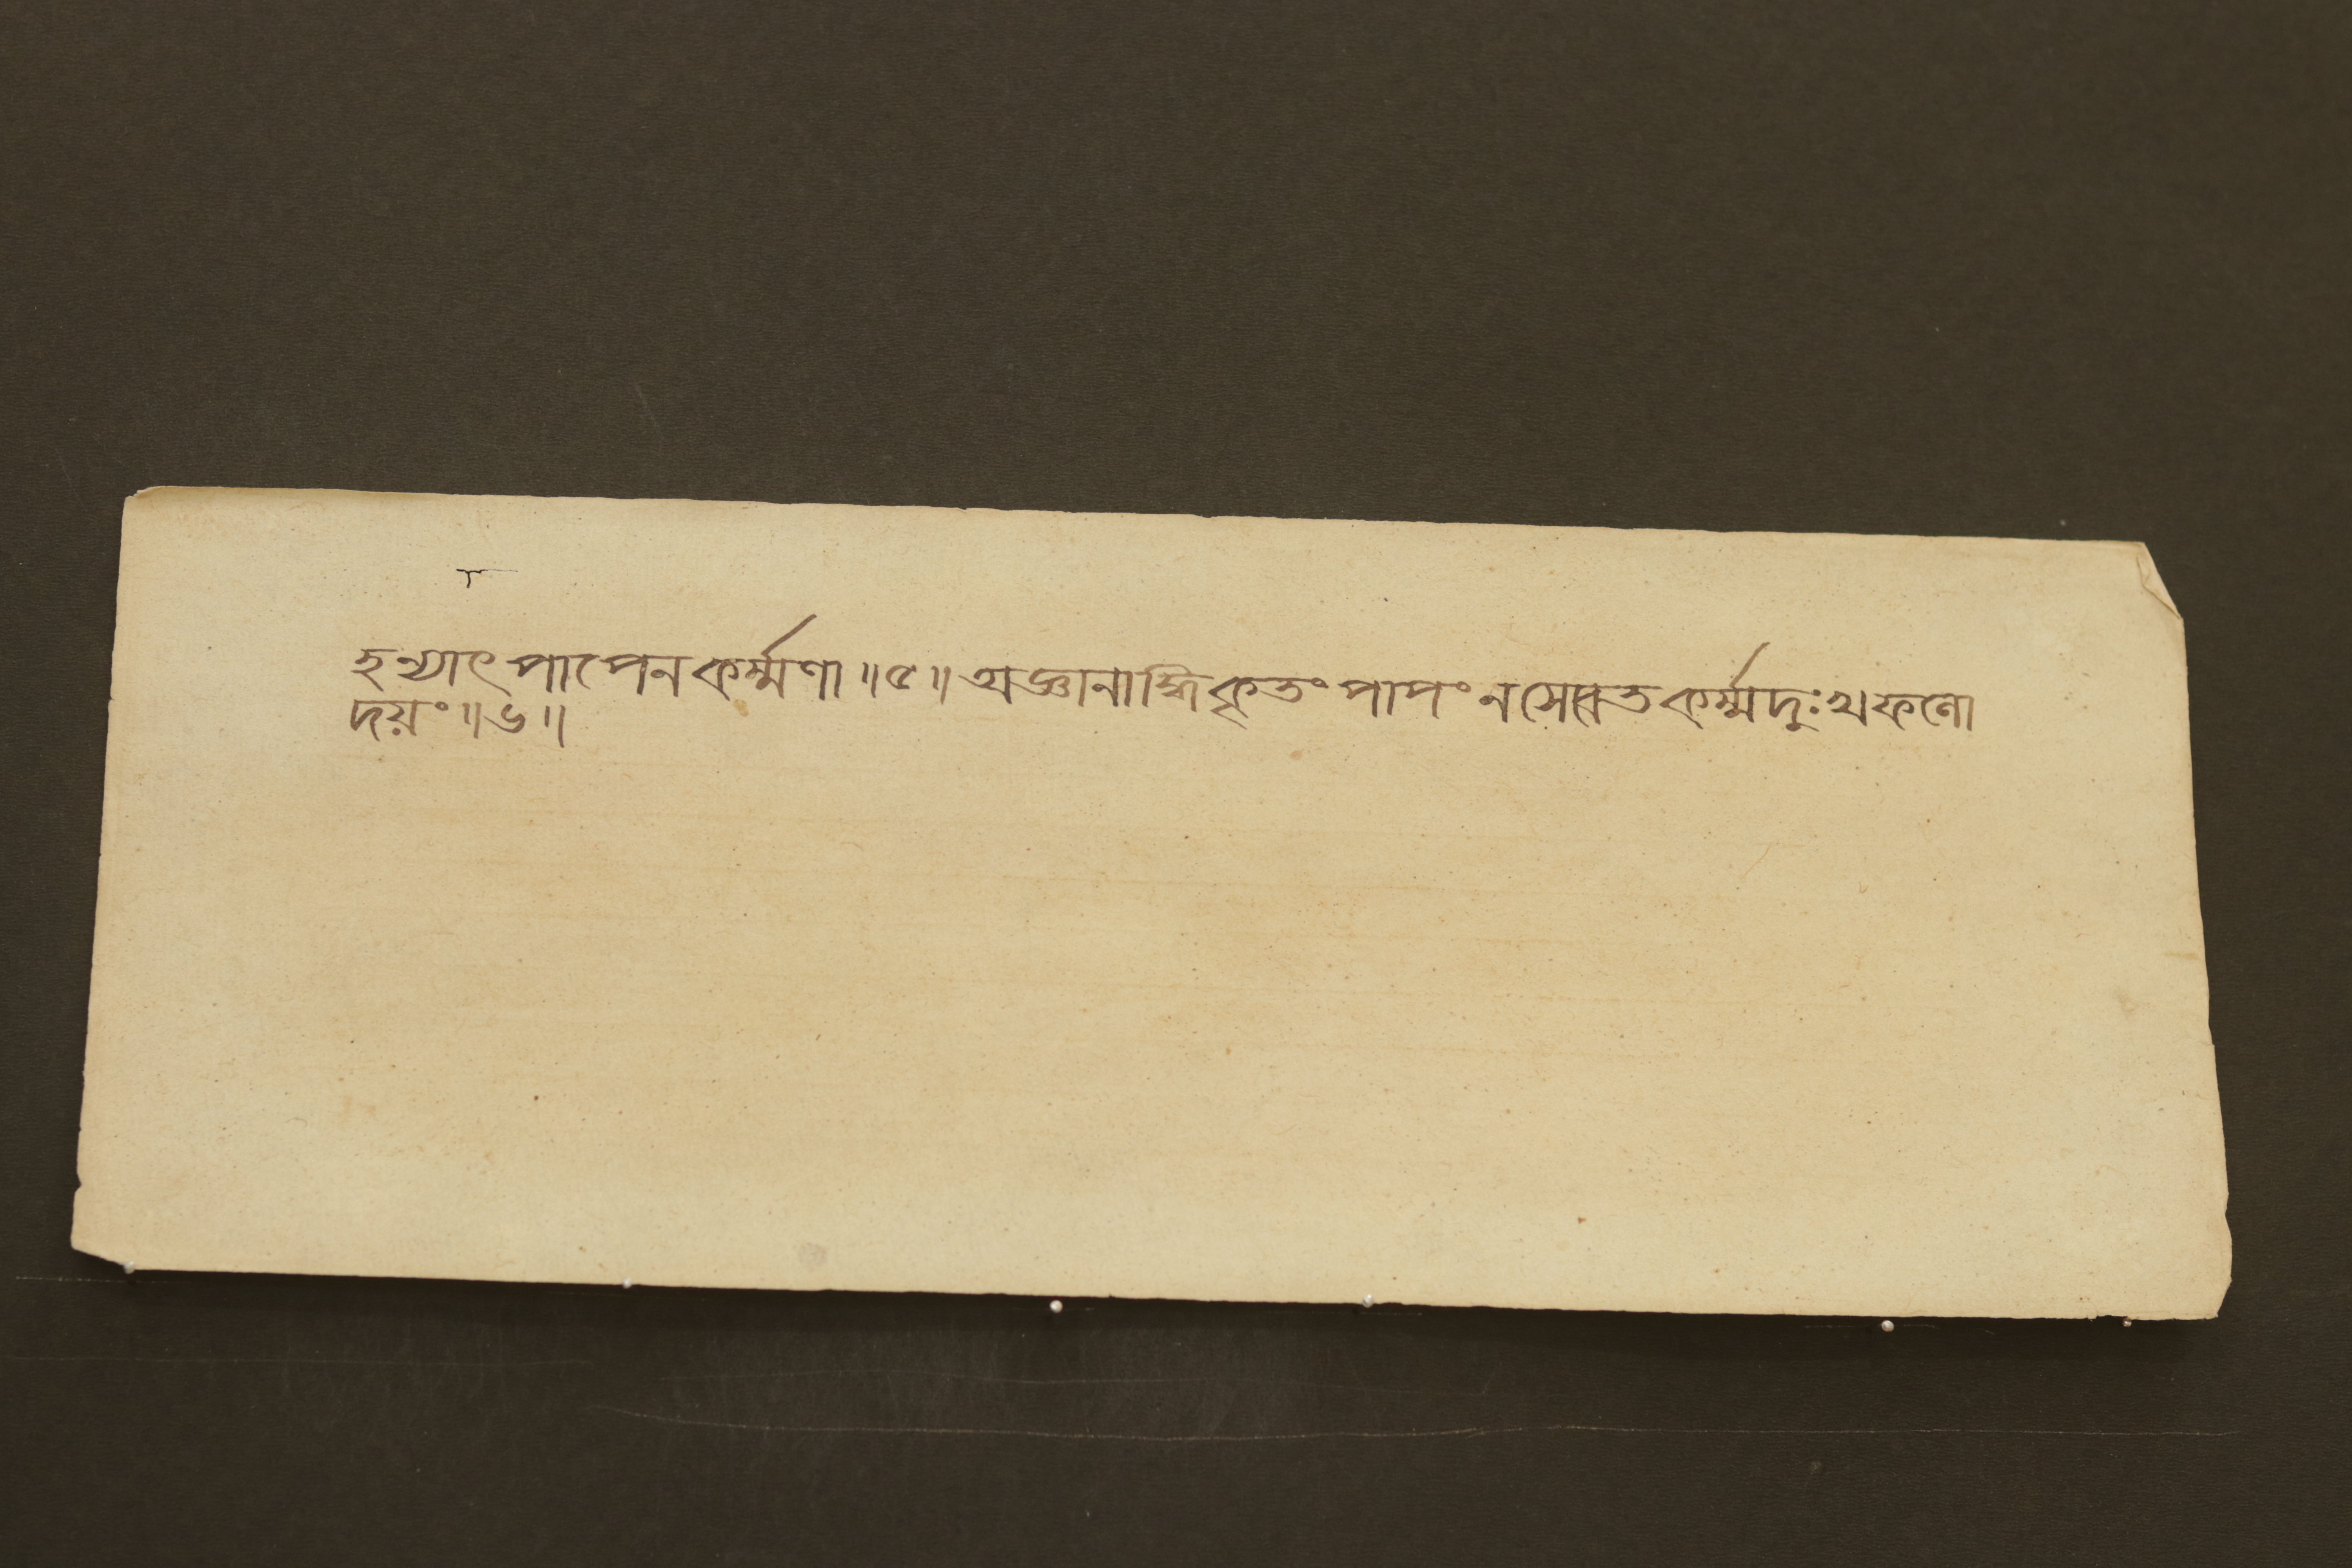 হন্যাৎ পাপেনকর্ম্মণা॥৫॥অজ্ঞানাদ্ধিকৃতং পাপং নসেবেতকর্ম্মদুঃখফলো
দয়ং॥৬॥